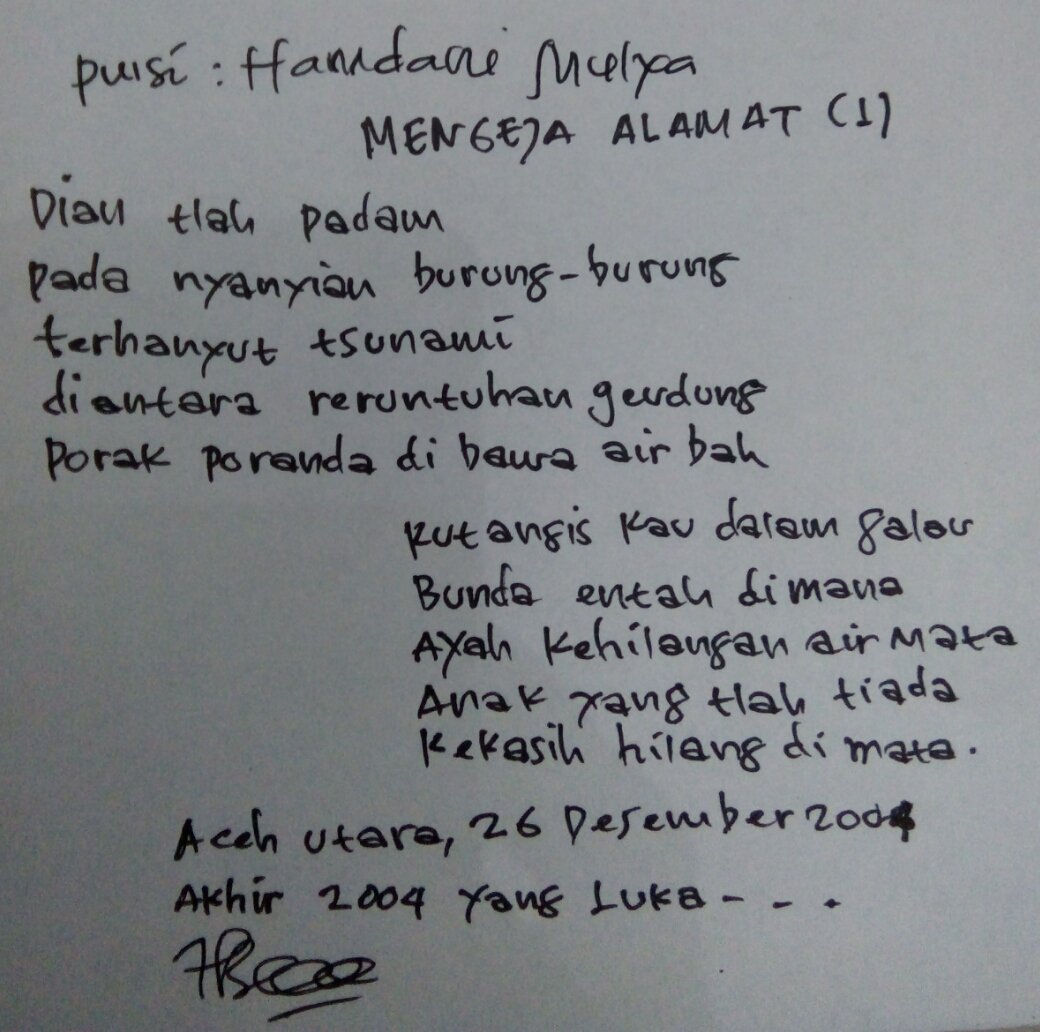 Puisi : Hamdani Mulya
MENGEJA ALAMAT (1)
Dian tlah padam
pada nyanyian burung-burung
terhanyut tsunami
diantara reruntuhan gendung
Porak poranda di bawa air bah
Kutangis Kau dalam galau
Bunda entah dimana
Ayah Kehilangan air Mata
Anak yang tlah tiada
Kekasih hilang di mata.
Aceh utara, 26 Desember 2004
Akhir 2004 yang Luka - - .